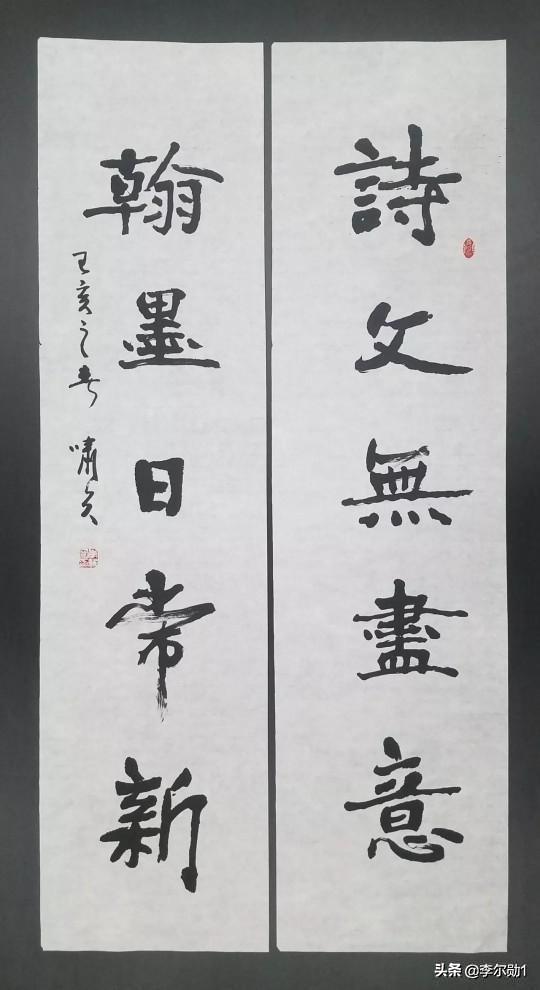 詩文無盡意
翰墨日常新
亥之春
嘯天
头条 @李尔勋1